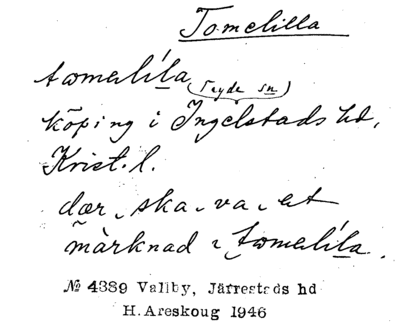 Tomelilla
tomalíla
(Tryde sn)
köping i Ingelstads hd,
Krist. l.
dær ska va et
màrknad i tomalíla.
№ 4389 Vallby, Järrestads hd
H. Areskoug 1946